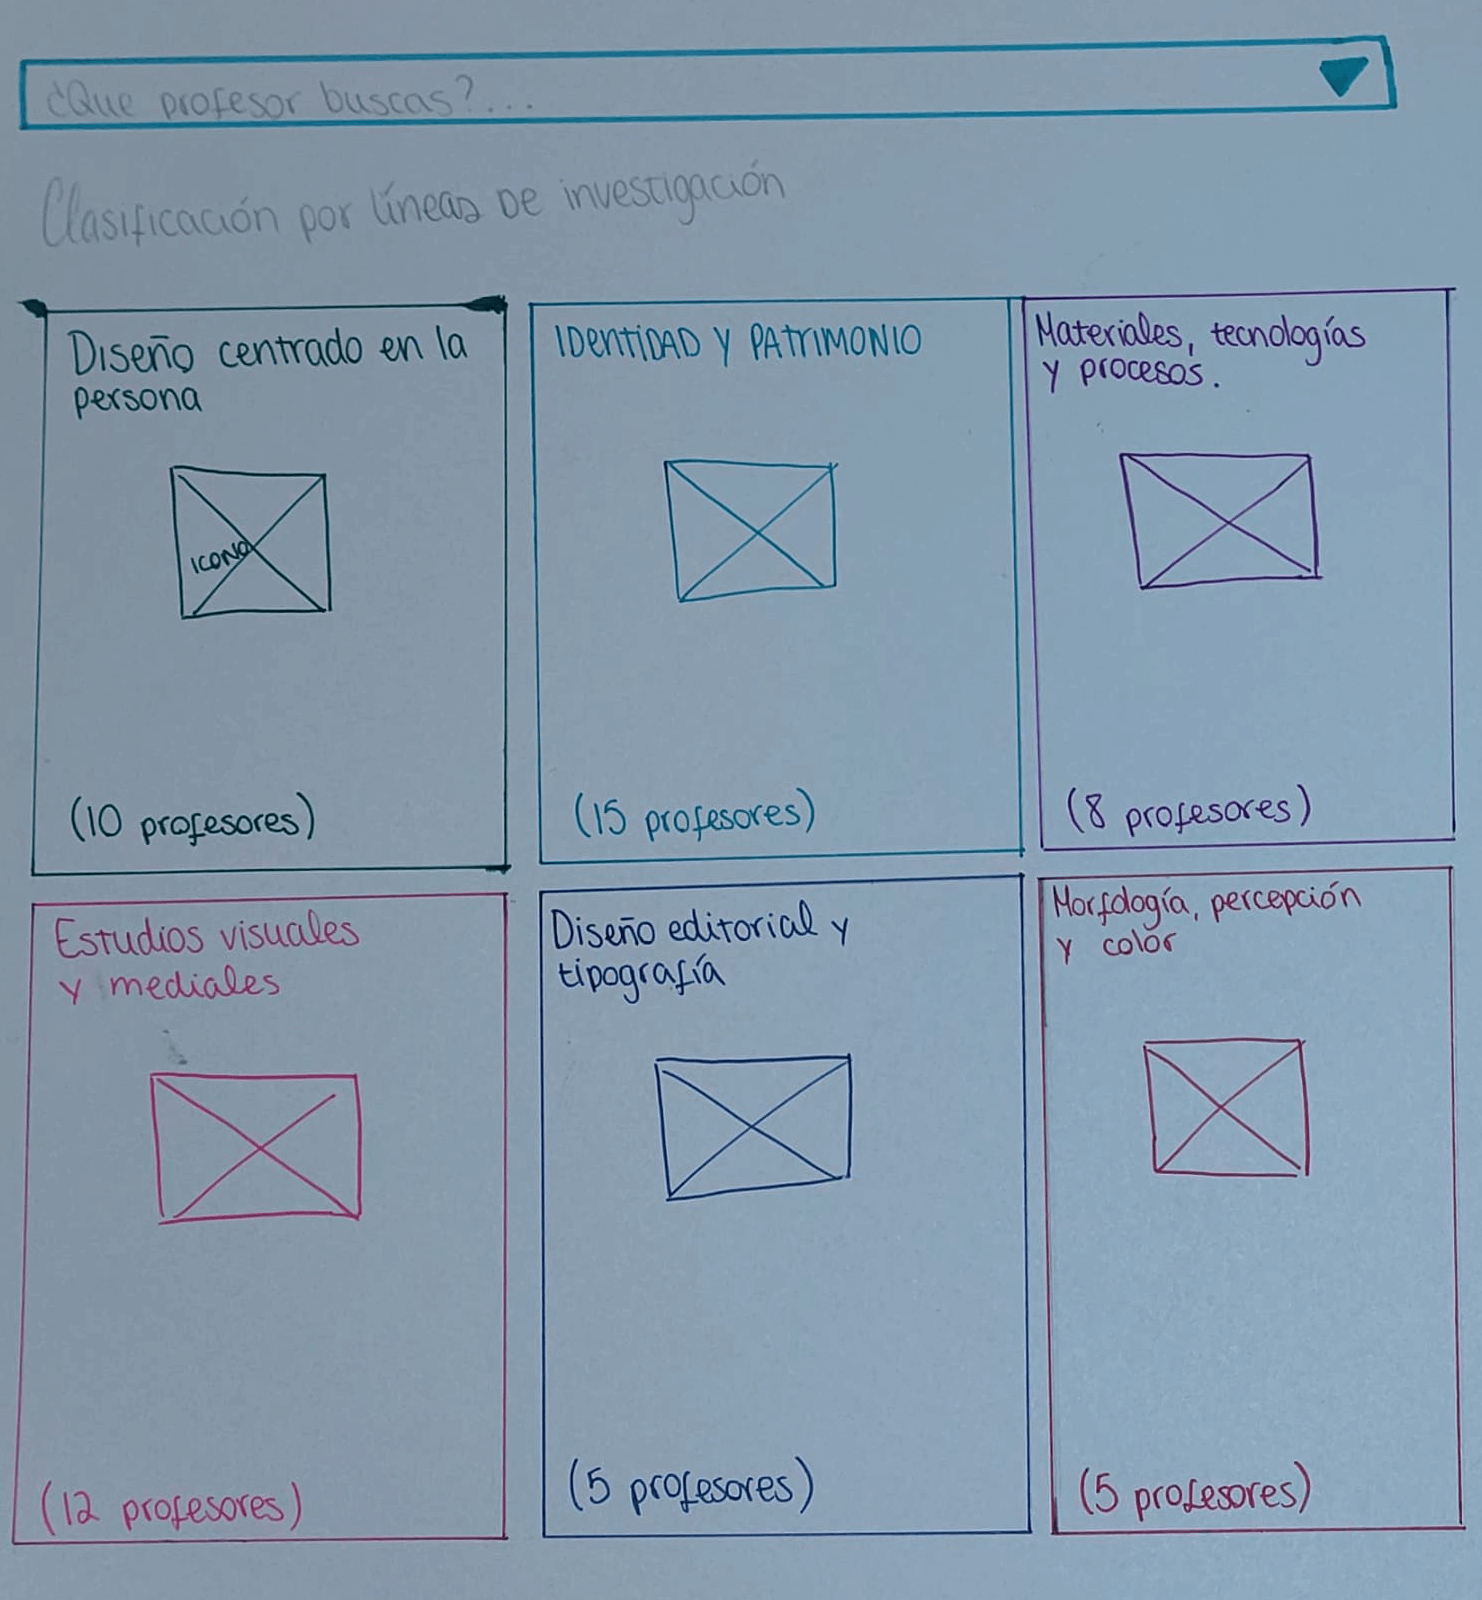 ¿Que profesor buscas?...
Clasificación por líneas DE investigación
Diseño centrado en la
persona
ICONO
(10 profesores)
IDENTIDAD Y PATRIMONIO
(15 profesores)
Materiales, tecnologías
y procesos.
(8 profesores)
Estudios visuales
y mediales
(12 profesores)
Diseño editorial y
tipografía
(5 profesores)
Morfología, percepción
y color
(5 profesores)